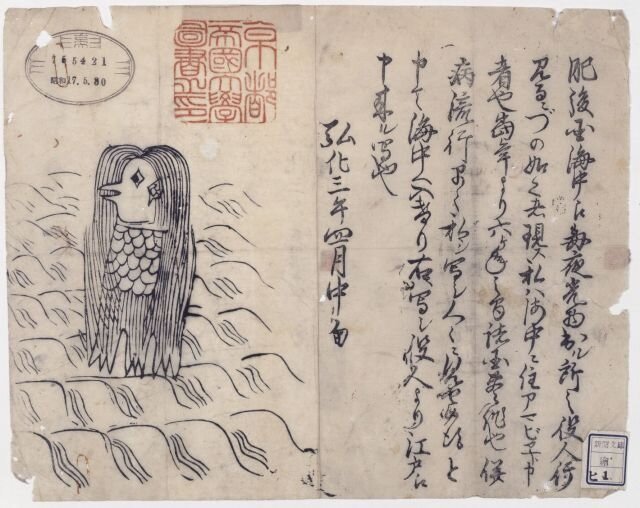 肥後国海中え毎夜光物出ル所之役人行
見るニづの如之者現ス私ハ海中ニ住アマビヱト申
者也当年より六ヶ年之間諸国豊作也併
病流行早々私シ写シ人々ニ見セ候得と
申て海中へ入けり右写シ役人より江戸え
申来ル写也
弘化三年四月中旬
京都
帝國大學
圖書之印
昭和17.5.30
新聞文庫
繪
ヒ 1